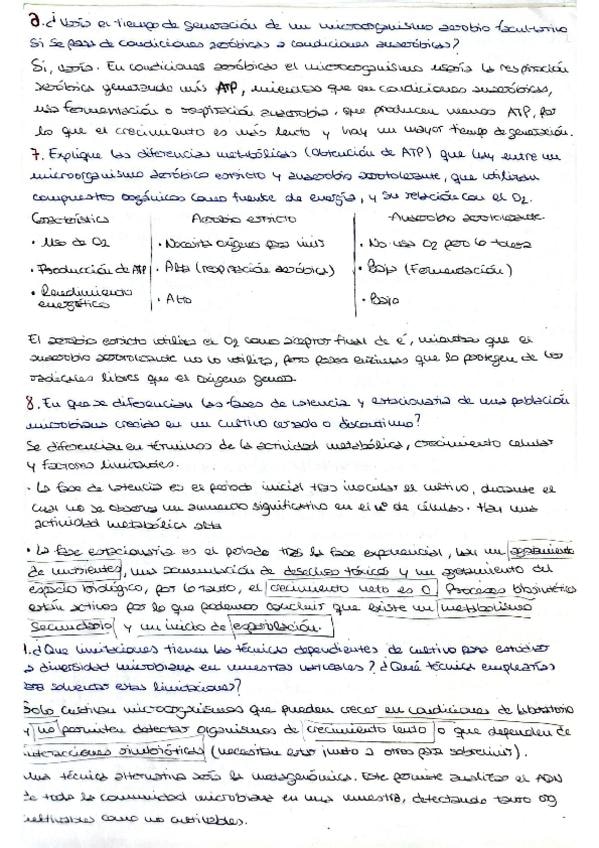 2. ¿Varía el tiempo de generación de un microorganismo aerobio facultativo
si se pasa de condiciones aeróbicas a condiciones anaeróbicas?
Si, varía. En condiciones aeróbicas el microorganismo usaría la respiración
aeróbica generando más ATP, mientras que en condiciones anaeróbicas,
usa fermentación o respiración anaerobia, que producen menos ATP, por
lo que el crecimiento es más lento y hay un mayor tiempo de generación.
7. Explique las diferencias metabólicas (obtención de ATP) que hay entre un
microorganismo aeróbico estricto y anaerobio aerotolerante, que utilizan
compuestos orgánicos como fuente de energía, y su relación con el O2.
Característica Aerobio estricto Anaerobio aerotolerante
• Uso de O2 • Necesita oxígeno para vivir • No usa O2 pero lo tolera
• Producción de ATP • Alta (respiración aeróbica) • Baja (Fermentación)
• Rendimiento energético • Alto • Bajo
El aerobio estricto utiliza el O2 como aceptor final de é, mientras que el
anaerobio aerotolerante no lo utiliza, pero posee enzimas que lo protegen de los
radicales libres que el oxígeno genera.
8. En que se diferencian las fases de latencia y estacionaria de una población
microbiana crecida en un cultivo cerrado o discontinuo?
Se diferencian en términos de la actividad metabólica, crecimiento celular
y factores limitantes.
• La fase de latencia es el periodo inicial tras inocular el cultivo, durante el
cual no se observa un aumento significativo en el nº de células. Hay una
actividad metabólica alta
• La fase estacionaria es el periodo tras la fase exponencial, hay un agotamiento
de nutrientes, una acumulación de desechos tóxicos y un agotamiento del
espacio biológico, por lo tanto, el crecimiento neto es 0. Procesos biosintéticos
están activos por lo que podemos concluir que existe un metabolismo
secundario y un inicio de esporulación.
1. ¿Que limitaciones tienen las técnicas dependientes de cultivo para estudiar
a diversidad microbiana en muestras naturales? ¿Qué técnica emplearías
para solventar estas limitaciones?
Solo cultivan microorganismos que pueden crecer en condiciones de laboratorio
y no permiten detectar organismos de crecimiento lento o que dependen de
interacciones simbióticas (necesitan estar junto a otros para sobrevivir).
Una técnica alternativa sería la metagenómica. Este permite analizar el ADN
de toda la comunidad microbiana en una muestra, detectando tanto org
cultivables como no cultivables.